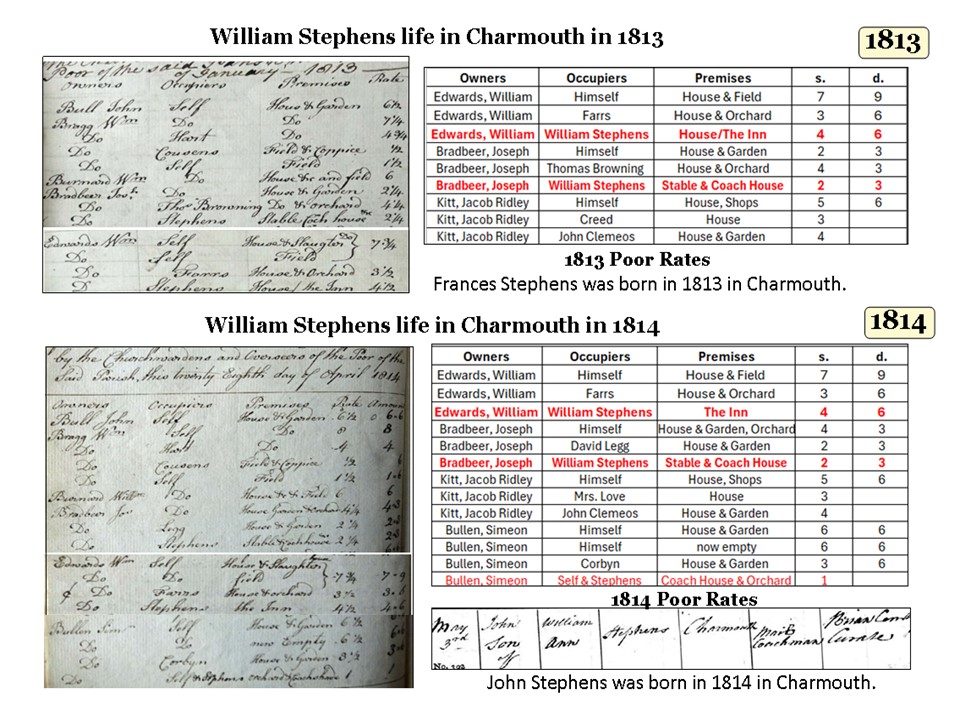 William Stephens life in Charmouth in 1813
1813
Poor of the said
of January - 1813
Owners Occupiers Premises Rate
Bull John Self House & Garden 6½
Bragg Wm Do Do 7¼
Do Hart Do 4¾
Do Cousens Field & Coppice ½
Do Self Field 1½
Burnard Wm Do House & and field 6
Bradbeer Josh. Do House & Garden 2¼
Do Thos Browning Do & orchard 4¼
Do Stephens Stable Coch house 2¼
Edwards Wm Self House & Slaughter 7¾
Do Self Field
Do Farrs House & Orchard 3½
D Stephens House/ the Inn 4½
Owners Occupiers Premises s. d.
Edwards, William Himself House & Field 7 9
Edwards, William Farrs House & Orchard 3 6
Edwards, William William Stephens House/The Inn 4 6
Bradbeer, Joseph Himself House & Garden 2 3
Bradbeer, Joseph Thomas Browning House & Orchard 4 3
Bradbeer, Joseph William Stephens Stable & Coach House 2 3
Kitt, Jacob Ridley Himself House, Shops 5 6
Kitt, Jacob Ridley Creed House 3
Kitt, Jacob Ridley John Clemeos House & Garden 4
1813 Poor Rates
Frances Stephens was born in 1813 in Charmouth.
William Stephens life in Charmouth in 1814
1814
by the Churchwardens and Overseers of the Poor of the
Said Parish, this twenty Eighth day of April 1814
Owners Occupiers Premises Rate
Bull John Self House & Garden 6½ 0 6-6
Bragg Wm Self Do 8 8
Do Hart Do 4 4
Do Cousens Field & Coppice ½
Do Self Field 1½ 1-6
Burnard Do House & Field 6 6
Bradbeer Jos Do House Garden & Orchard 4¼ 4-3
Do Legg House & Garden 2¼ 2-3
Do Stephens Stable & Cochhouse 2¼ 2-3
Edwards Wm Self House & Slaughter
Do Do field 7¾ 7-9
Do Farrs House & orchard 3½ 3-6
Do Stephens the Inn 4½ 4-6
Bullen Sim Self House & Garden 6½
Do Do now Empty 6½
Do Corbyn House & Garden 3½
Do Self & Stephens orchard & Coachouse 1 1
Owners Occupiers Premises s. d.
Edwards, William Himself House & Field 7 9
Edwards, William Farrs House & Orchard 3 6
Edwards, William William Stephens The Inn 4 6
Bradbeer, Joseph Himself House & Garden, Orchard 4 3
Bradbeer, Joseph David Legg House & Garden 2 3
Bradbeer, Joseph William Stephens Stable & Coach House 2 3
Kitt, Jacob Ridley Himself House, Shops 5 6
Kitt, Jacob Ridley Mrs. Love House 3
Kitt, Jacob Ridley John Clemeos House & Garden 4
Bullen, Simeon Himself House & Garden 6 6
Bullen, Simeon Himself now empty 6 6
Bullen, Simeon Corbyn House & Garden 3 6
Bullen, Simeon Self & Stephens Coach House & Orchard 1
1814 Poor Rates
May 3rd John Son of William Ann Stephens Charmouth Mail Coachman Brian Comb Curate
No. 192
John Stephens was born in 1814 in Charmouth.